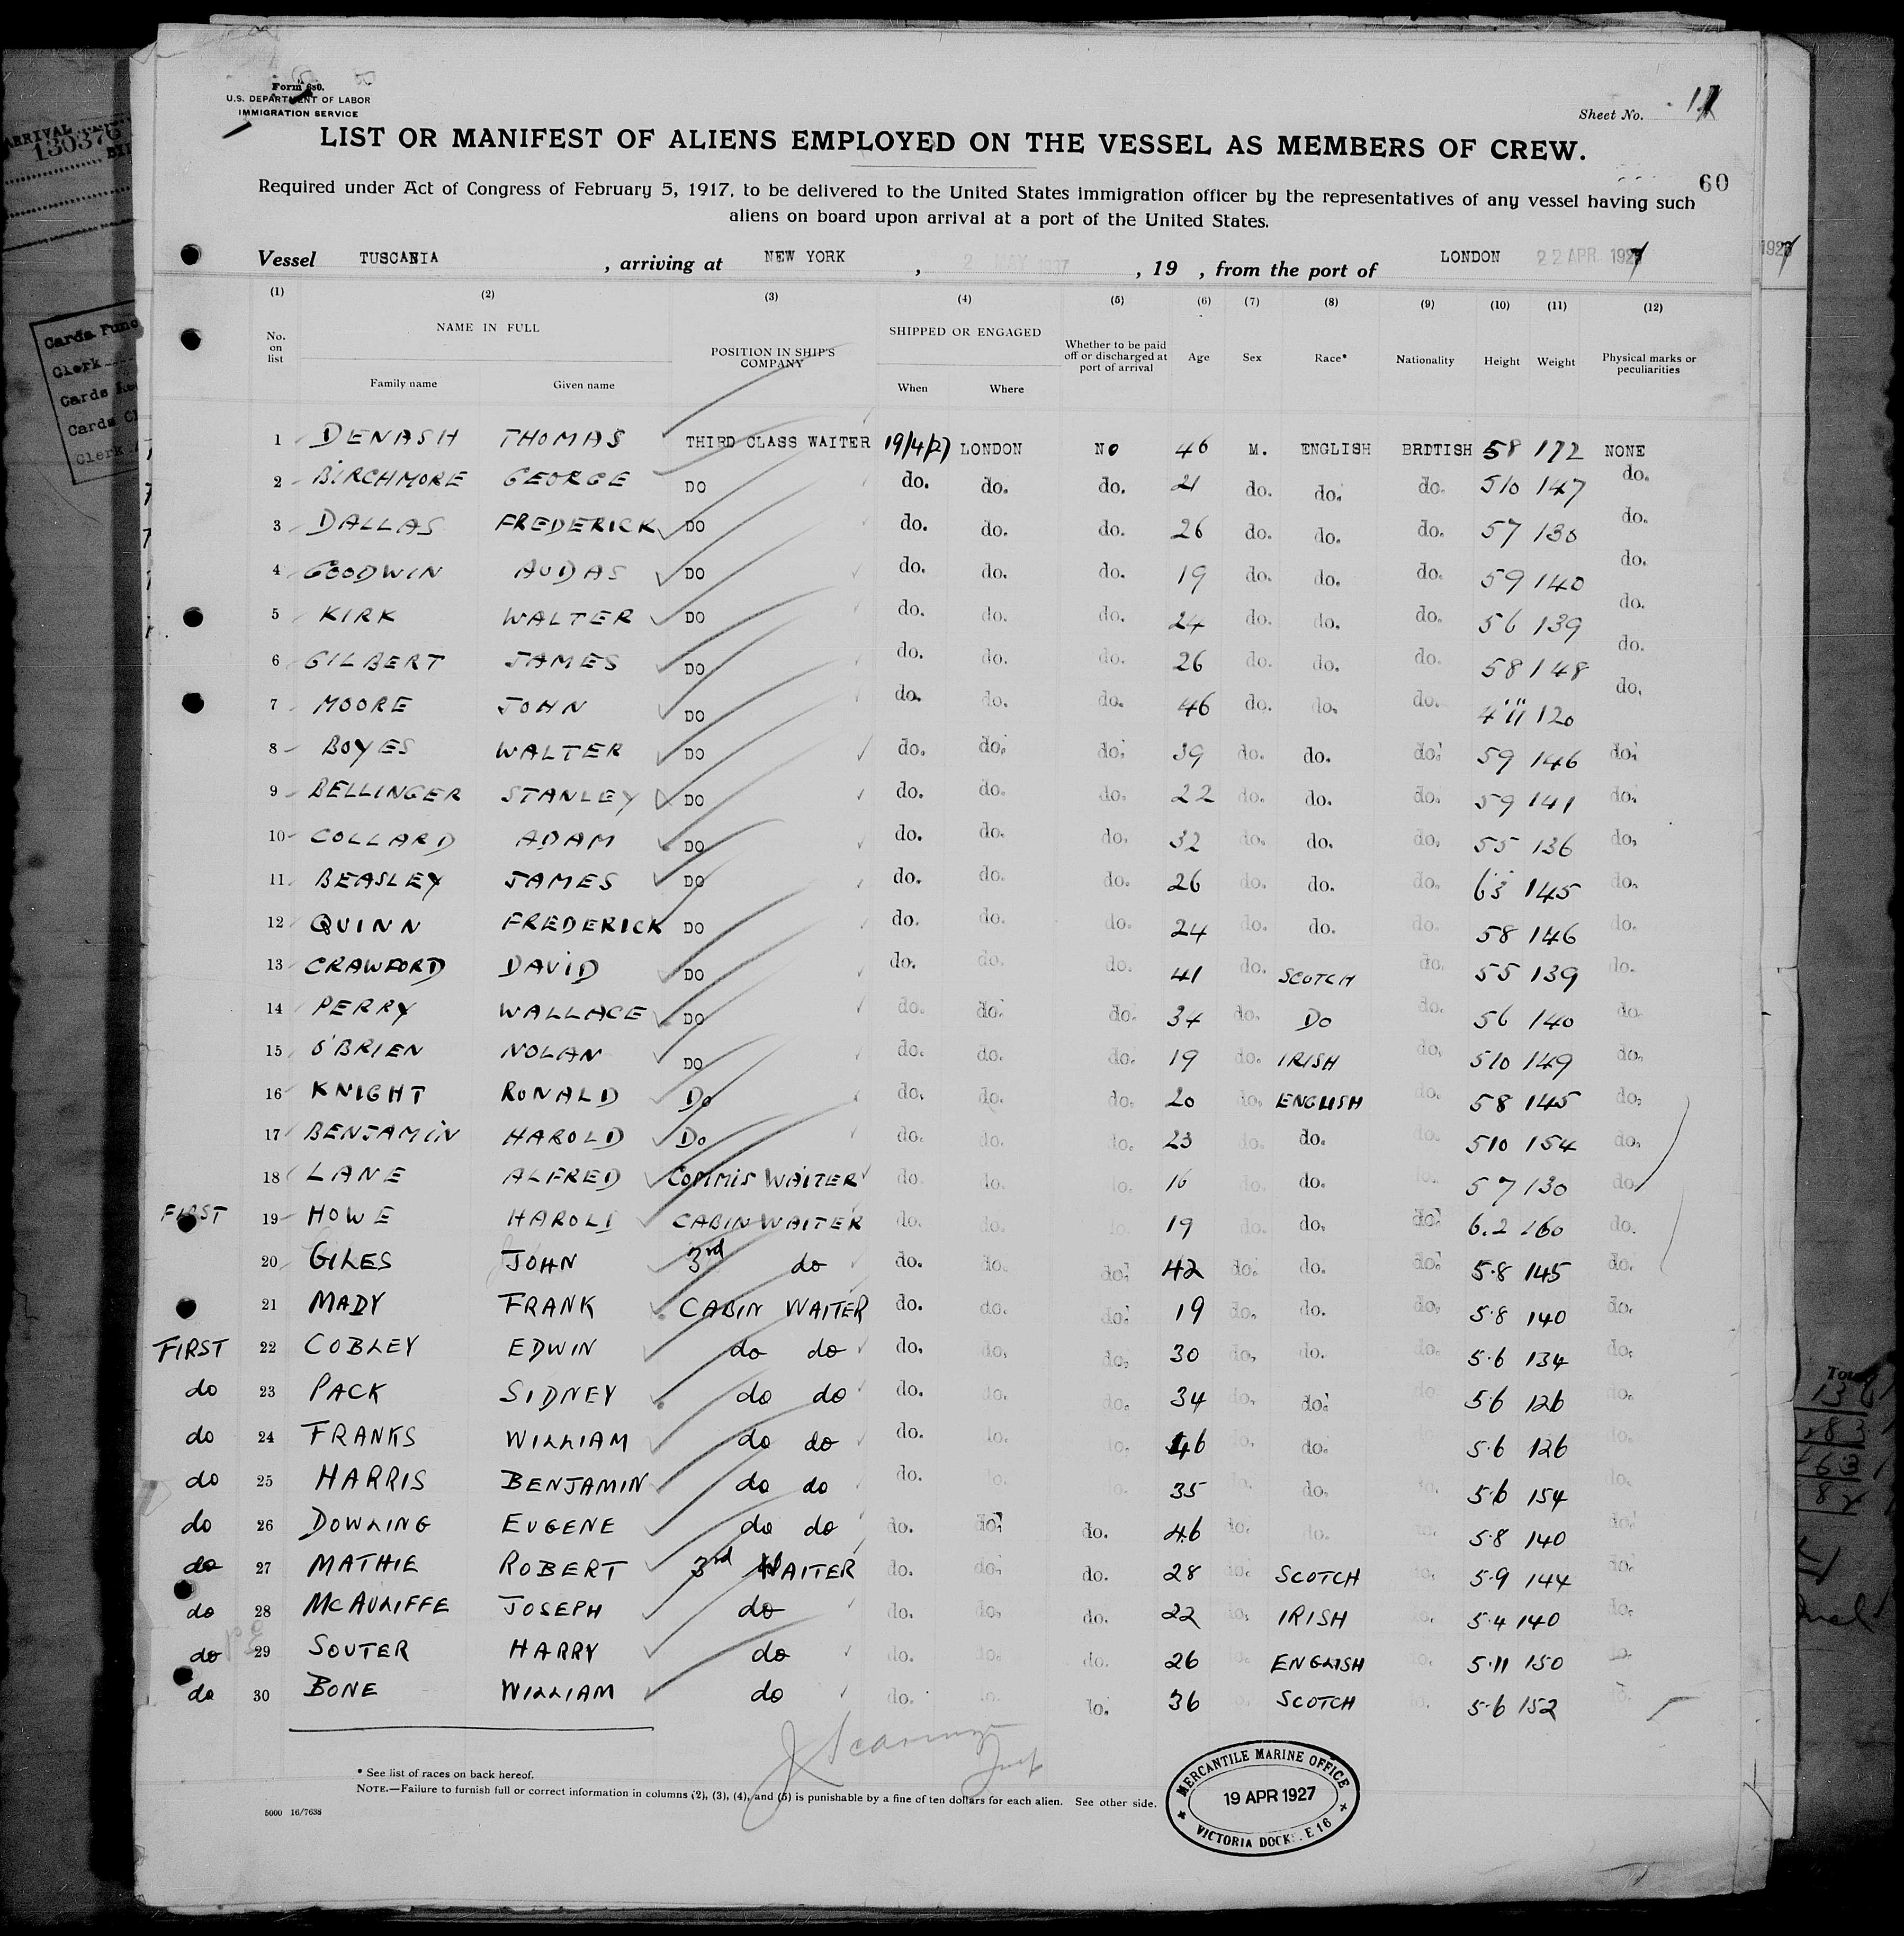 Form 680.
U.S. DEPARTMENT OF LABOR
IMMIGRATION SERVICE
Sheet No. 11
LIST OR MANIFEST OF ALIENS EMPLOYED ON THE VESSEL AS MEMBERS OF CREW.
60
Required under Act of Congress of February 5, 1917, to be delivered to the United States immigration officer by the representatives of any vessel having such
aliens on board upon arrival at a port of the United States.
Vessel TUSCANIA , arriving at NEW YORK , 2 MAY 1927 , 19 , from the port of LONDON 22 APR 1927
(1) (2) (3) (4) (5) (6) (7) (8) (9) (10) (11) (12)
No. on list NAME IN FULL Family name Given name POSITION IN SHIP'S COMPANY SHIPPED OR ENGAGED When Where Whether to be paid off or discharged at port of arrival Age Sex Race* Nationality Height Weight Physical marks or peculiarities
1 DENASH THOMAS THIRD CLASS WAITER 19/4/27 LONDON NO 46 M. ENGLISH BRITISH 58 172 NONE
2 BIRCHMORE GEORGE DO do. do. do. 21 do. do. do. 510 147 do.
3 DALLAS FREDERICK DO do. do. do. 26 do. do. do. 57 130 do.
4 GOODWIN AUDAS DO do. do. do. 19 do. do. do. 59 140 do.
5 KIRK WALTER DO do. do. do. 24 do. do. do. 56 139 do.
6 GILBERT JAMES DO do. do. do. 26 do. do. do. 58 148 do.
7 MOORE JOHN DO do. do. do. 46 do. do. do. 4'11" 120 do.
8 BOYES WALTER DO do. do. do. 39 do. do. do. 59 146 do.
9 BELLINGER STANLEY DO do. do. do. 22 do. do. do. 59 141 do.
10 COLLARD ADAM DO do. do. do. 32 do. do. do. 55 136 do.
11 BEASLEY JAMES DO do. do. do. 26 do. do. do. 63 145 do.
12 QUINN FREDERICK DO do. do. do. 24 do. do. do. 58 146 do.
13 CRAWFORD DAVID DO do. do. do. 41 do. SCOTCH do. 55 139 do.
14 PERRY WALLACE DO do. do. do. 34 do. DO do. 56 140 do.
15 O'BRIEN NOLAN DO do. do. do. 19 do. IRISH do. 510 149 do.
16 KNIGHT RONALD DO do. do. do. 20 do. ENGLISH do. 58 145 do.
17 BENJAMIN HAROLD DO do. do. do. 23 do. do. do. 510 154 do.
18 LANE ALFRED COMMIS WAITER do. do. do. 16 do. do. do. 57 130 do.
FIRST 19 HOWE HAROLD CABIN WAITER do. do. do. 19 do. do. do. 6.2 160 do.
20 GILES JOHN 3rd do do. do. do. 42 do. do. do. 5.8 145 do.
21 MADY FRANK CABIN WAITER do. do. do. 19 do. do. do. 5.8 140 do.
FIRST 22 COBLEY EDWIN do do do. do. do. 30 do. do. do. 5.6 134 do.
do 23 PACK SIDNEY do do do. do. do. 34 do. do. do. 5.6 126 do.
do 24 FRANKS WILLIAM do do do. do. do. 46 do. do. do. 5.6 126 do.
do 25 HARRIS BENJAMIN do do do. do. do. 35 do. do. do. 5.6 154 do.
do 26 DOWLING EUGENE do do do. do. do. 46 do. do. do. 5.8 140 do.
do 27 MATHIE ROBERT 3rd WAITER do. do. do. 28 do. SCOTCH do. 5.9 144 do.
do 28 McAULIFFE JOSEPH do do. do. do. 22 do. IRISH do. 5.4 140 do.
do 29 SOUTER HARRY do do. do. do. 26 do. ENGLISH do. 5.11 150 do.
do 30 BONE WILLIAM do do. do. do. 36 do. SCOTCH do. 5.6 152 do.
* See list of races on back hereof.
NOTE.—Failure to furnish full or correct information in columns (2), (3), (4), and (5) is punishable by a fine of ten dollars for each alien. See other side.
5000 16/7638
MERCANTILE MARINE OFFICE
19 APR 1927
VICTORIA DOCKS. E 16
ARRIVAL
130376
Cards Punc
Clerk
Cards
Cards
Clerk